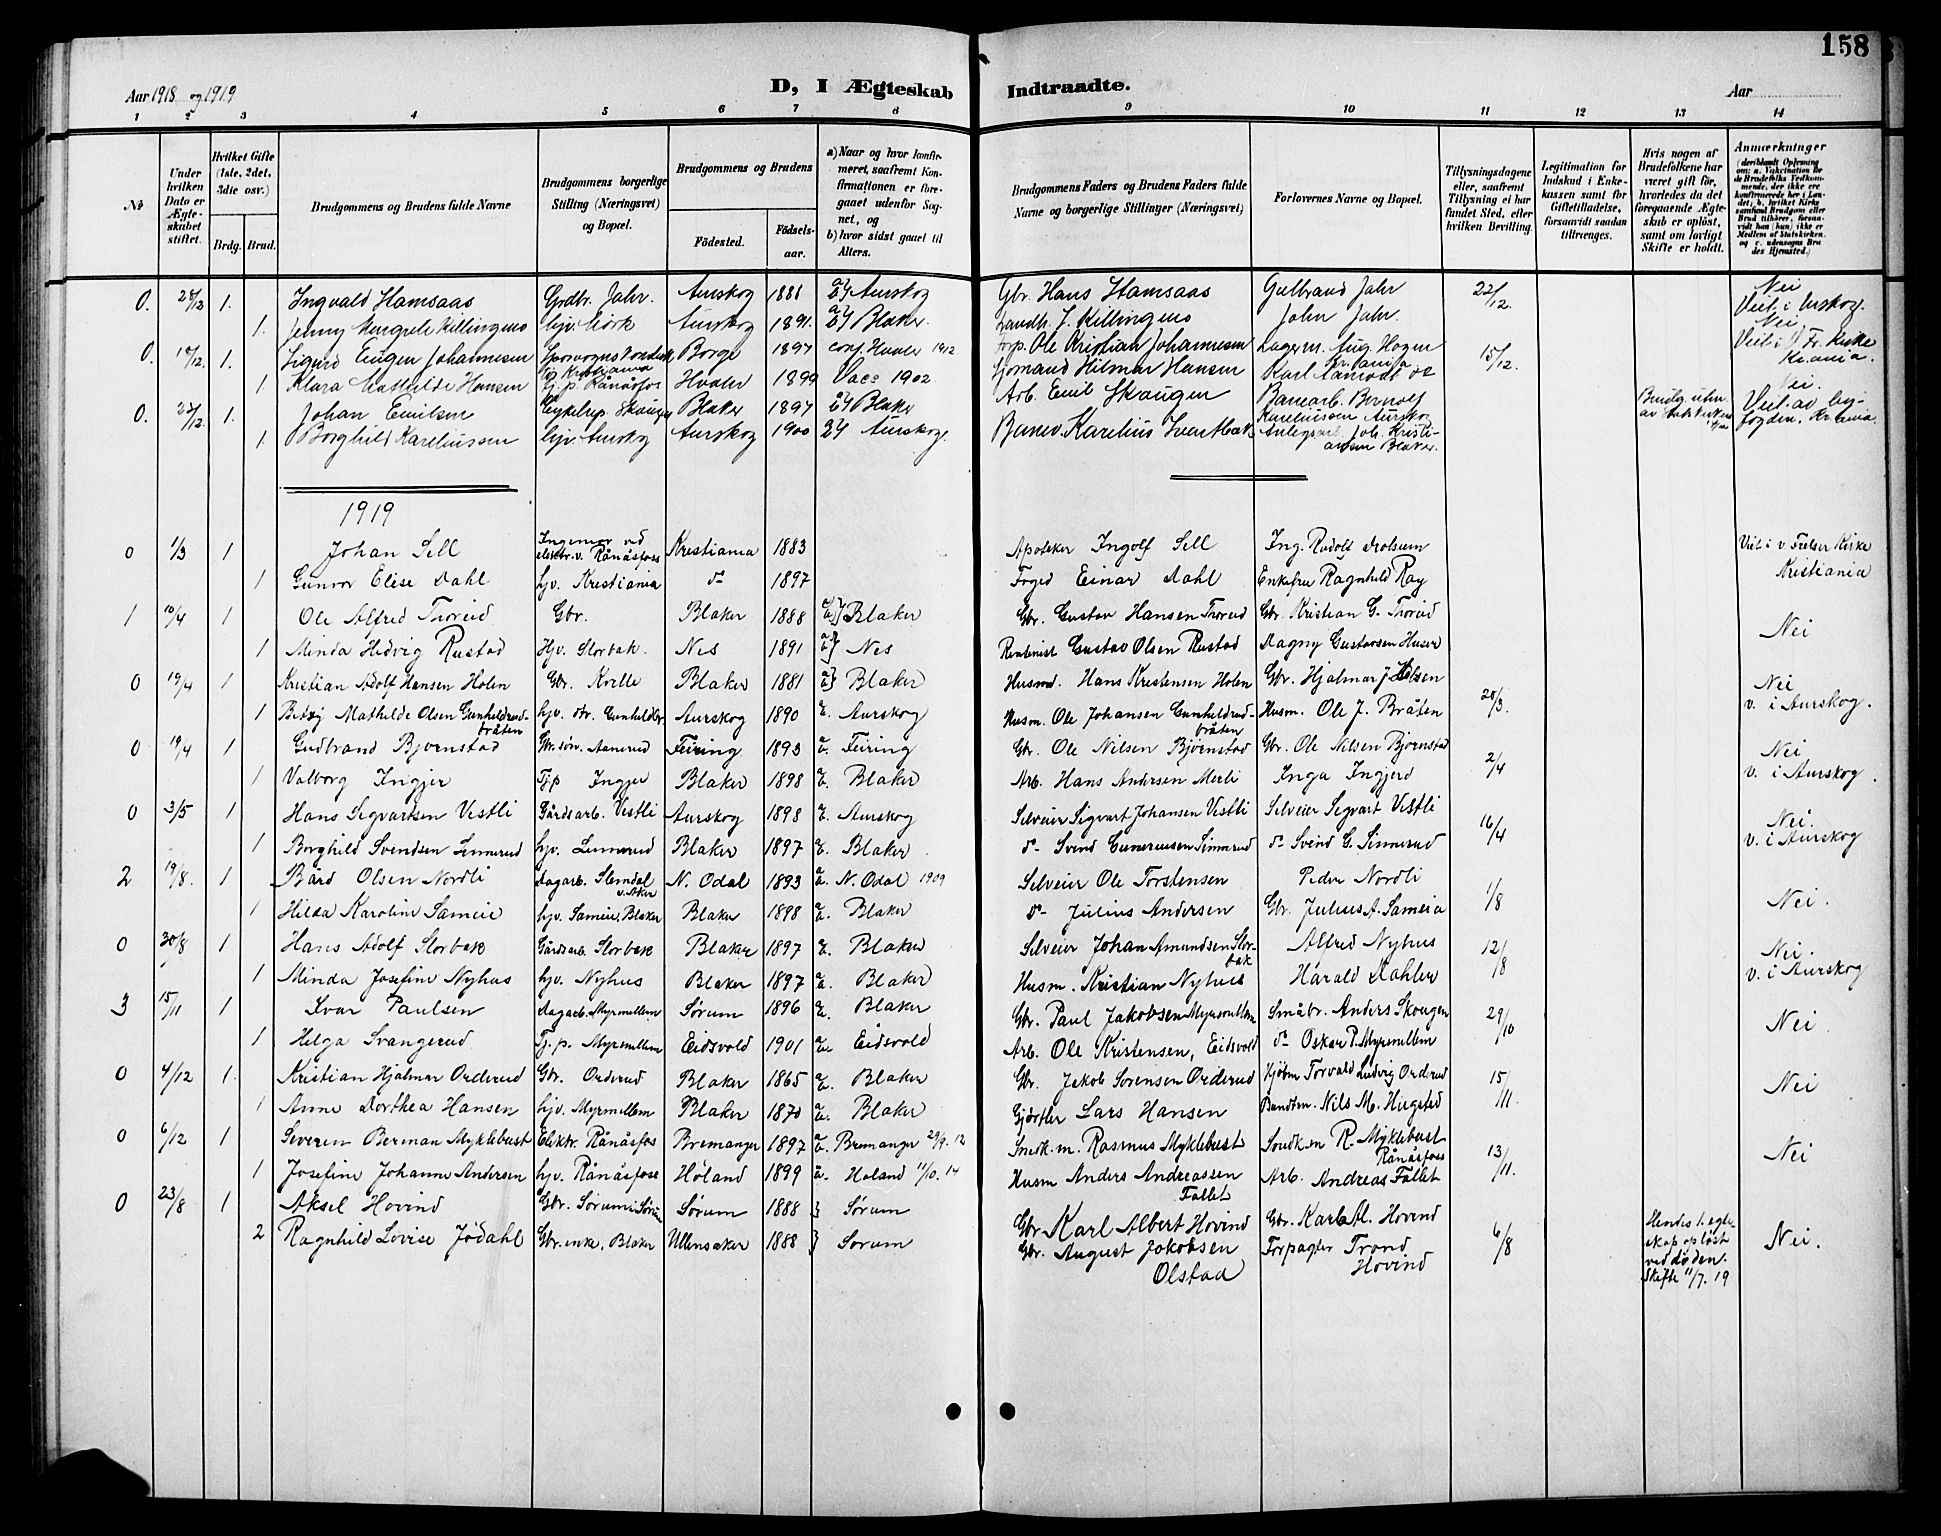 158
Aar 1918 og 1919
D, I Ægteskab Indtraadte.
Aar
1 2 3 4 5 6 7 8 9 10 11 12 13 14
№
Under hvilken Dato er Ægteskabet stiftet.
Hvilket Gifte (1ste, 2det, 3die osv.)
Brdg. Brud.
Brudgommens og Brudens fulde Navne
Brudgommens borgerlige Stilling (Næringsvei) og Bopæl.
Brudgommens og Brudens
Födested.
Födselsaar.
a) Naar og hvor konfirmeret, saafremt Konfirmationen er foregaaet udenför Sognet, og
b) hvor sidst gaaet til Alters.
Brudgommens Faders og Brudens Faders fulde Navne og borgerlige Stillinger (Næringsvei)
Forlovernes Navne og Bopæl.
Tillysningsdagene eller, saafremt Tillysning ei har fundet Sted, efter hvilken Bevilling.
Legitimation for Indskud i Enkekassen samt för Giftetilladelse, forsaavidt saadan tiltrænges.
Hvis nogen af Brudefolkene har været gift för, hvorledes da det foregaaende Ægteskab er oplöst, samt om lovligt Skifte er holdt.
Anmærkninger
0. 28/12 1. Ingvald Hamsaas Grdbr. Jahr. Aurskog 1881 Aurskog Gbr. Hans Hamsaas Gulbrand Jahr 22/12. Nei
1. Jenny Killingmo hjv. Mork Aurskog 1891. Blaker. Landh. J. Killingmo John Jahr. Viet i Aurskog.
0. 1. Sigurd Eugen Johannesen Borge 1897 conf. Hvaler 1912 Ole Kristian Johannesen Lagerm. Aug. Hagen 15/12. Nei
1 Klara Mathilde Hansen Tj. p. Rånåsfos Hvaler 1899 Vacs 1902. Sjömand Hilmar Hansen Karl
0. 1. Johan Emilsen Skaugen Blaker 1897 Blaker Arb. Emil Skaugen Banearb. Nei.
1. Borghild Kareliussen hjv. Aurskog Aurskog 1900 Aurskog. Banev. Karelius Kareliussen Aurskog
Blaker.
1919
0 1/3 1 Johan Sell Ingeniør ved elektr.v. Rånåsfoss Kristiania 1883 Apoteker Ingolf Sell Ing. Rudolf Viet i v. Frelser Kirke
1 Gunvor Elise Dahl hjv. Kristiania do 1897 Foged Einar Dahl Enkefru Ragnhild Ray Kristiania
1 10/4 1 Ole Alfred Thorud Gbr. Blaker 1888 Blaker Gbr. Gustav Hansen Thorud Gbr. Kristian G. Thorud Nei
1 Minda Hedvig Rustad Hjv. Storbak. Nes 1891 Nes Rentenist Gustav Olsen Rustad Dagny Gustavsen Huser
0 19/4 1 Kristian Adolf Hansen Holen Gbr. Kvelle Blaker 1881 Blaker Husmd. Hans Kristensen Holen Gbr. Hjalmar J. Nei
1 Betzy Mathilde Olsen Gunhildrudbråten hjv. Aurskog 1890 Aurskog Husm. Ole Johansen Gunhildrudbråten Husm. Ole J. Bråten 28/3. v. i Aurskog.
0 19/4 1 Gudbrand Bjørnstad Gbr. søn. Aanerud Feiring 1893 Feiring Gbr. Ole Nilsen Bjørnstad Gbr. Ole Nilsen Bjørnstad Nei
1 Valborg Ingjer Tjp Ingjer Blaker 1898 Blaker Arb. Hans Andersen Merli Inga Ingjerd 2/4 v. i Aurskog.
0 3/5 1 Hans Sigvartsen Vestli Gårdsarb. Vestli Aurskog 1898 Aurskog Selveier Sigvart Johansen Vestli Selveier Sigvart Vestli 16/4 Nei.
1 Borghild Svendsen Sinnerud hjv. Sinnerud Blaker 1897 Blaker do Svend Gunerusen Sinnerud do Svend G. Sinnerud v. i Aurskog
2 19/8. 1 Bård Olsen Nordli Dagarb. Slemdal v. Aker N. Odal 1893 N. Odal 1909 Selveier Ole Torstensen Peder Nordli 1/8 Nei.
1 Hilda Karoline Sameie hjv. Sameie, Blaker Blaker 1898 Blaker do Julius Andersen Gbr. Julius A. Sameia
0 30/8 1 Hans Adolf Storbak Gårdsarb. Storbak Blaker 1897 Blaker Selveier Johan Amundsen Storbak Alfred Nyhus 12/8 Nei.
1 Minda Josefine Nyhus hjv. Nyhus Blaker 1897 Blaker Husm. Kristian Nyhus Harald Dahler v. i Aurskog
3 15/11 1 Ivar Paulsen Dagarb. Myrmellem Sørum 1896 Blaker Gbr. Paul Jakobsen Myrmellem Småbr. Anders Skougen 29/10 Nei.
1 Helga Svangerud Tj. p. Myrmellem Eidsvold 1901 Eidsvold Arb. Ole Kristensen, Eidsvold do Oskar P. Myrmellem
0 4/12 1. Kristian Hjalmar Orderud Gbr. Orderud Blaker 1865 Blaker Gbr. Jakob Sorensen Orderud Kjøbm Torvald Ludvig Orderud 15/11. Nei
1 Anne Dorthea Hansen hjv. Myrmellem Blaker 1870 Blaker Gjørtler Lars Hansen Bundtm. Nils M. Hiegstad
0 6/12 1 Severin Berman Myklebust Elektr. Rånåsfos Bremanger 1897 Bremanger 29/9. 12 Snedk.m. Rasmus Myklebust Snedk.m R. Myklebust Rånåsfoss 13/11. Nei
1 Josefine Johanne Andersen hjv. Rånåsfoss Høland 1899 Høland 11/10. 14 Husm Anders Andreassen Fallet Arb. Andreas Fallet
0 23/8 1 Aksel Hovind Gbr. Sørum i Sørum Sørum 1888 Sørum Gbr Karl Albert Hovind Gbr. Karl Al. Hovind 6/8 Hendes 1. egteskab opløst ved døden. Skifte 11/7. 19 Nei.
2 Ragnhild Lovise Jødahl Gbr. enke, Blaker Ullensaker 1888 Sørum Gbr. August Jakobsen Olstad Forpagter Trond Hovind